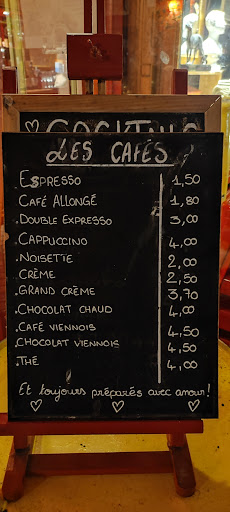 COCKTAILS
LES CAFÉS
ESPRESSO 1,50
CAFÉ ALLONGÉ 1,80
.DOUBLE EXPRESSO 3,00
.CAPPUCCINO 4,00
.NOISETTE 2,00
.CRÈME 2,50
.GRAND CRÈME 3,70
.CHOCOLAT CHAUD 4,00
.CAFÉ VIENNOIS 4,50
.CHOCOLAT VIENNOIS 4,50
.THÉ 4,00
Et toujours préparés avec amour!